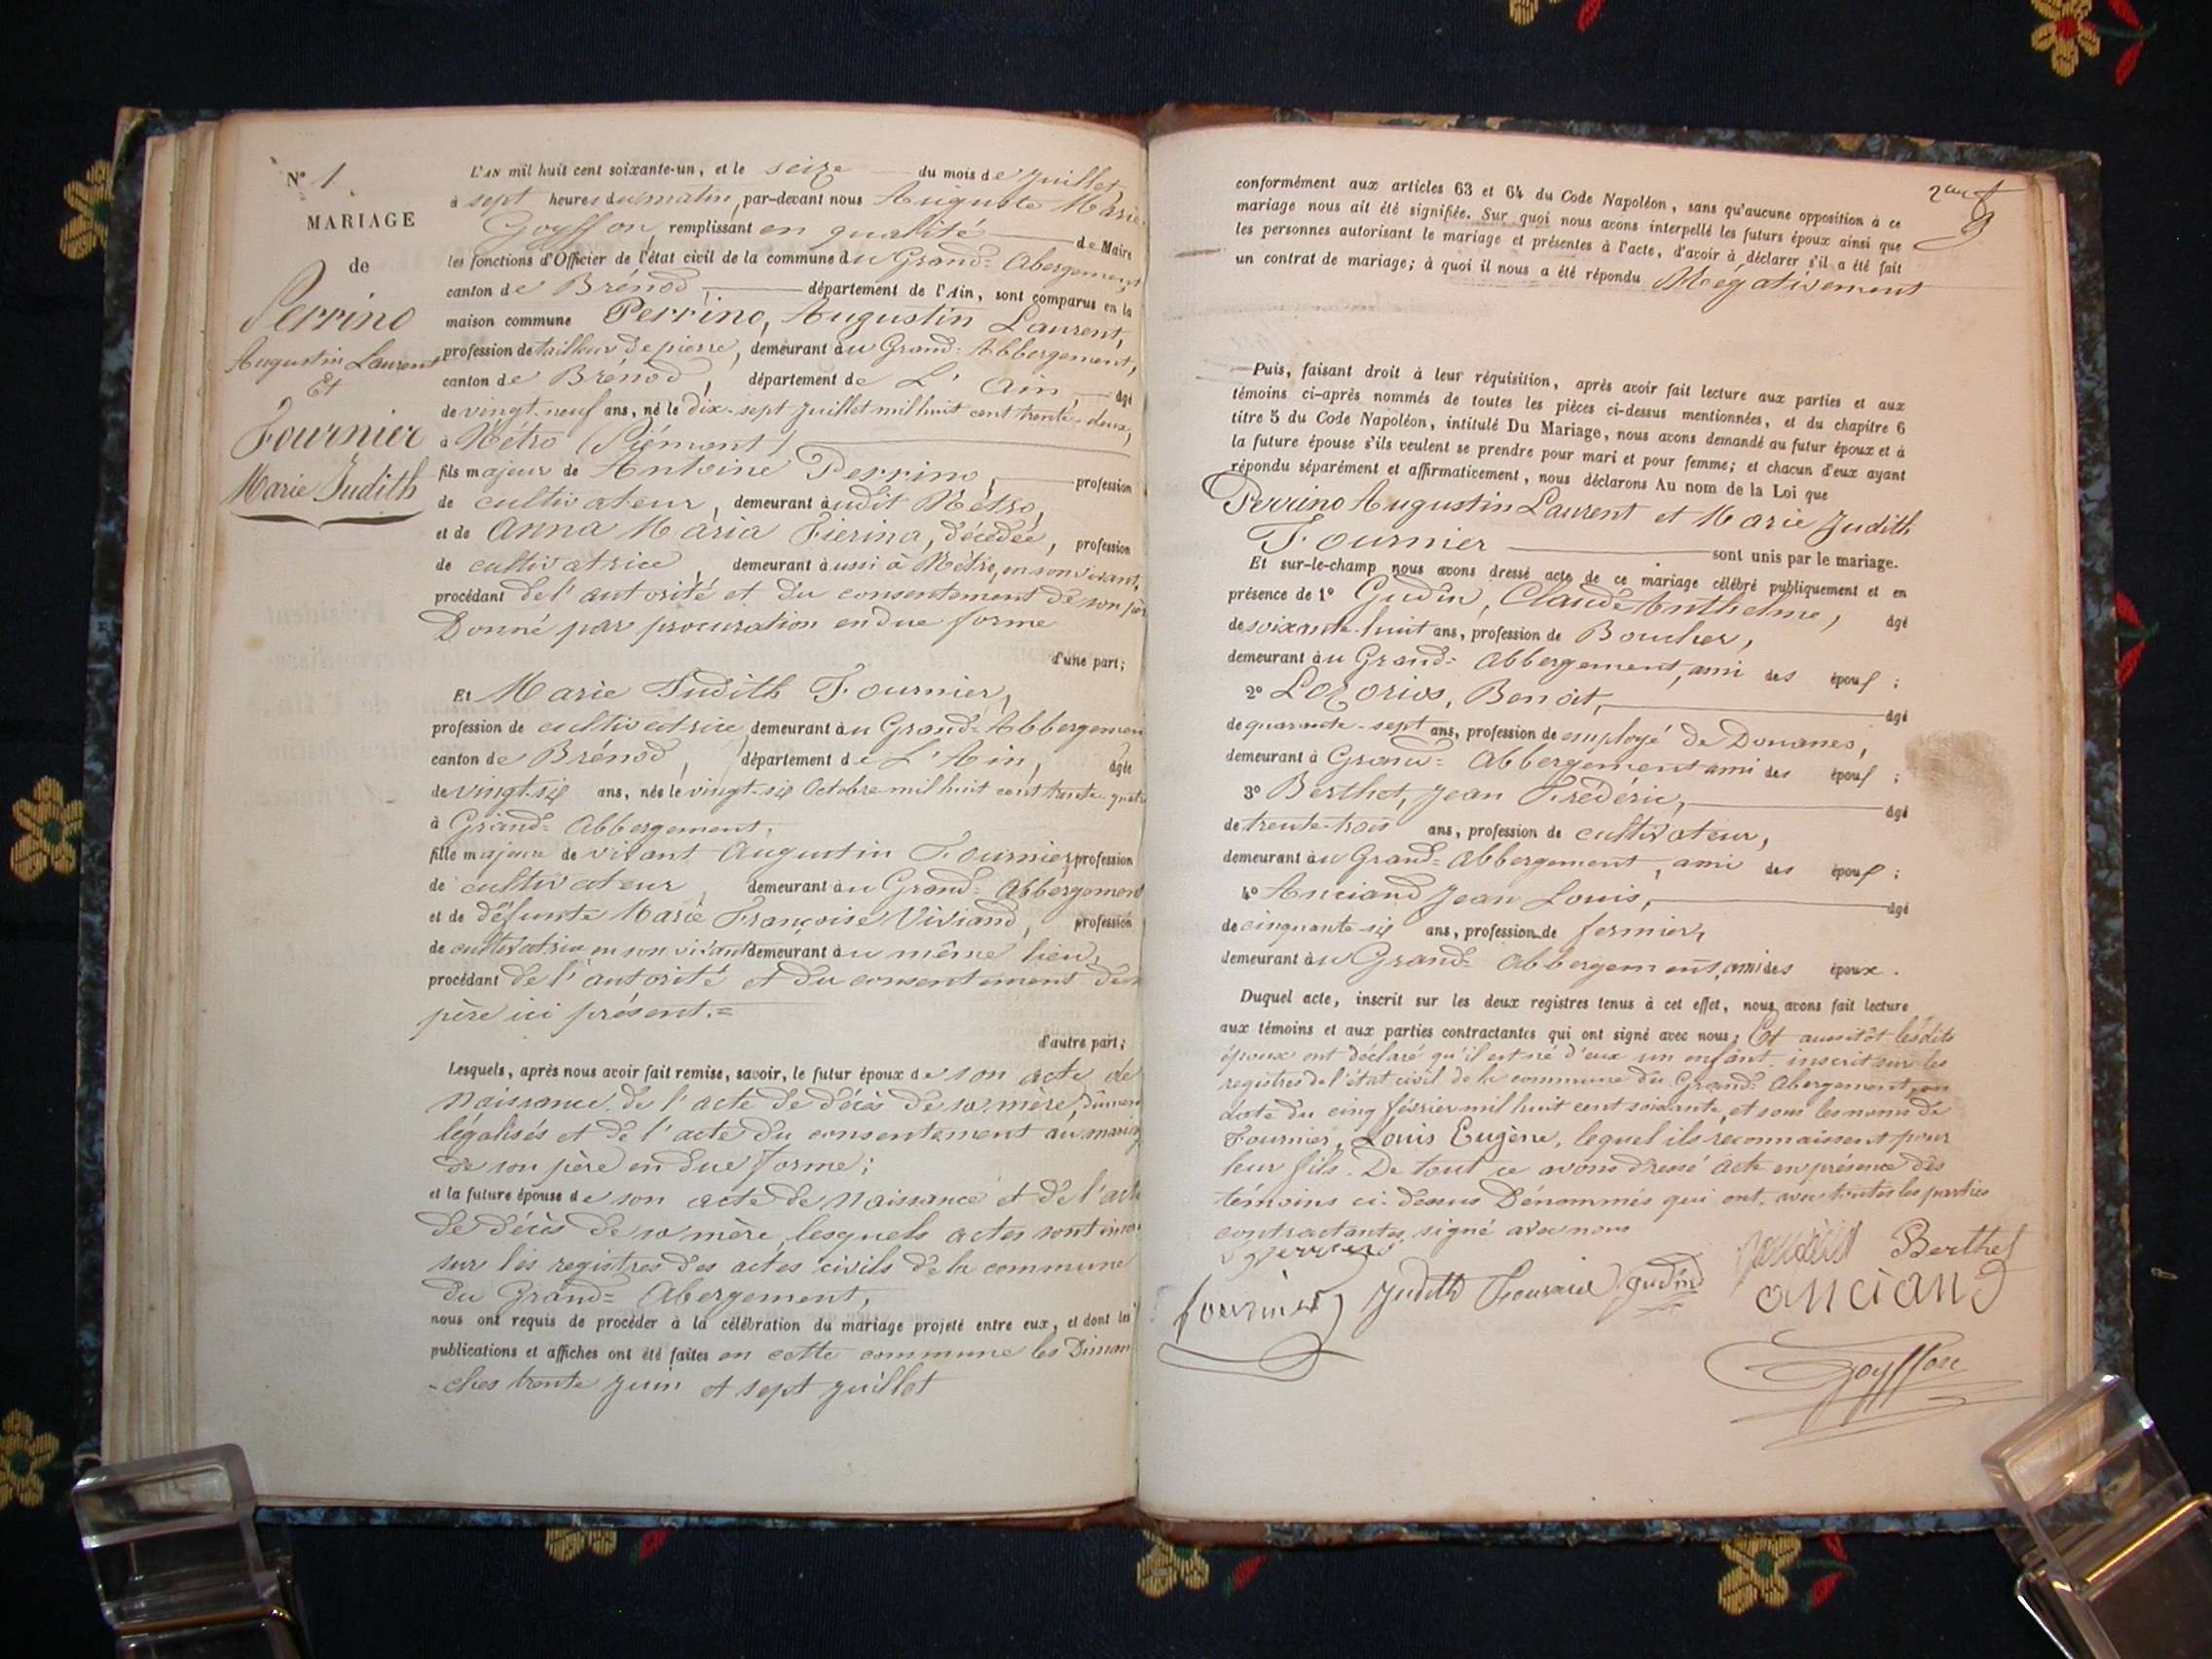 N° 1
MARIAGE
de
Perrino
Augustin Laurent
Et
Fournier
Marie Judith
L'AN mil huit cent soixante-un, et le seize du mois de Juillet,
à sept heures du matin, par-devant nous Auguste Marie
Goyffon, remplissant en qualité de Maire
les fonctions d'Officier de l'état civil de la commune du Grand-Abergement,
canton de Brénod, département de l'Ain, sont comparus en la
maison commune Perrino, Augustin Laurent,
profession de tailleur de pierre, demeurant au Grand-Abbergement,
canton de Brénod, département de L'Ain, âgé
de vingt-neuf ans, né le dix-sept Juillet mil huit cent trente-deux,
à (Piémont)
fils majeur de Antoine Perrino, profession
de cultivateur, demeurant audit
et de Anna Maria Fierina, décédée, profession
de cultivatrice, demeurant aussi à en son vivant,
procédant de l'autorité et du consentement de son père
Donné par procuration en due forme
d'une part;
Et Marie Judith Fournier,
profession de cultivatrice, demeurant au Grand-Abbergement
canton de Brénod, département de L'Ain, âgée
de vingt-six ans, née le vingt-six Octobre mil huit cent trente-quatre
à Grand-Abbergement,
fille majeure de vivant Augustin Fournier, profession
de cultivateur, demeurant au Grand-Abbergement
et de défunte Marie Françoise Viviand, profession
de cultivatrice en son vivant demeurant au même lieu,
procédant de l'autorité et du consentement de son
père ici présent.=
d'autre part;
Lesquels, après nous avoir fait remise, savoir, le futur époux de son acte de
Naissance, de l'acte de décès de sa mère, dûment
légalisés et de l'acte du consentement au mariage
de son père en due forme;
et la future épouse de son acte de Naissance et de l'acte
de décès de sa mère, lesquels actes sont inscrits
sur les registres des actes civils de la commune
du Grand-Abergement,
nous ont requis de procéder à la célébration du mariage projeté entre eux, et dont les
publications et affiches ont été faites en cette commune les Diman
-ches trente Juin et sept Juillet
2me f
conformément aux articles 63 et 64 du Code Napoléon, sans qu'aucune opposition à ce
mariage nous ait été signifiée. Sur quoi nous avons interpellé les futurs époux ainsi que
les personnes autorisant le mariage et présentes à l'acte, d'avoir à déclarer s'il a été fait
un contrat de mariage; à quoi il nous a été répondu Négativement
Puis, faisant droit à leur réquisition, après avoir fait lecture aux parties et aux
témoins ci-après nommés de toutes les pièces ci-dessus mentionnées, et du chapitre 6
titre 5 du Code Napoléon, intitulé Du Mariage, nous avons demandé au futur époux et à
la future épouse s'ils veulent se prendre pour mari et pour femme; et chacun d'eux ayant
répondu séparément et affirmativement, nous déclarons Au nom de la Loi que
Perrino Augustin Laurent et Marie Judith
Fournier sont unis par le mariage.
Et sur-le-champ nous avons dressé acte de ce mariage célébré publiquement et en
présence de 1° Gudin, Claude Anthelme, âgé
de soixante-huit ans, profession de Boucher,
demeurant au Grand-Abbergement, ami des époux;
2° Benoit, âgé
de quarante-sept ans, profession de employé de Douanes,
demeurant à Grand-Abbergement ami des époux;
3° Berthet, Jean Frédéric, âgé
de trente-trois ans, profession de cultivateur,
demeurant au Grand-Abbergement, ami des époux;
4° Anciand Jean Louis, âgé
de cinquante-six ans, profession de fermier,
demeurant au Grand-Abbergement, ami des époux.
Duquel acte, inscrit sur les deux registres tenus à cet effet, nous avons fait lecture
aux témoins et aux parties contractantes qui ont signé avec nous; Et aussitôt lesdits
époux ont déclaré qu'il est né d'eux un enfant inscrit sur les
registres de l'état civil de la commune du Grand-Abergement, en
date du cinq février mil huit cent soixante, et sous les noms de
Fournier, Louis Eugène, lequel ils reconnaissent pour
leur fils. De tout ce avons dressé Acte en présence des
témoins ci-dessus Dénommés qui ont, avec toutes les parties
contractantes, signé avec nous
Berthet
fournier Judith Gudin anciand
Goyffon